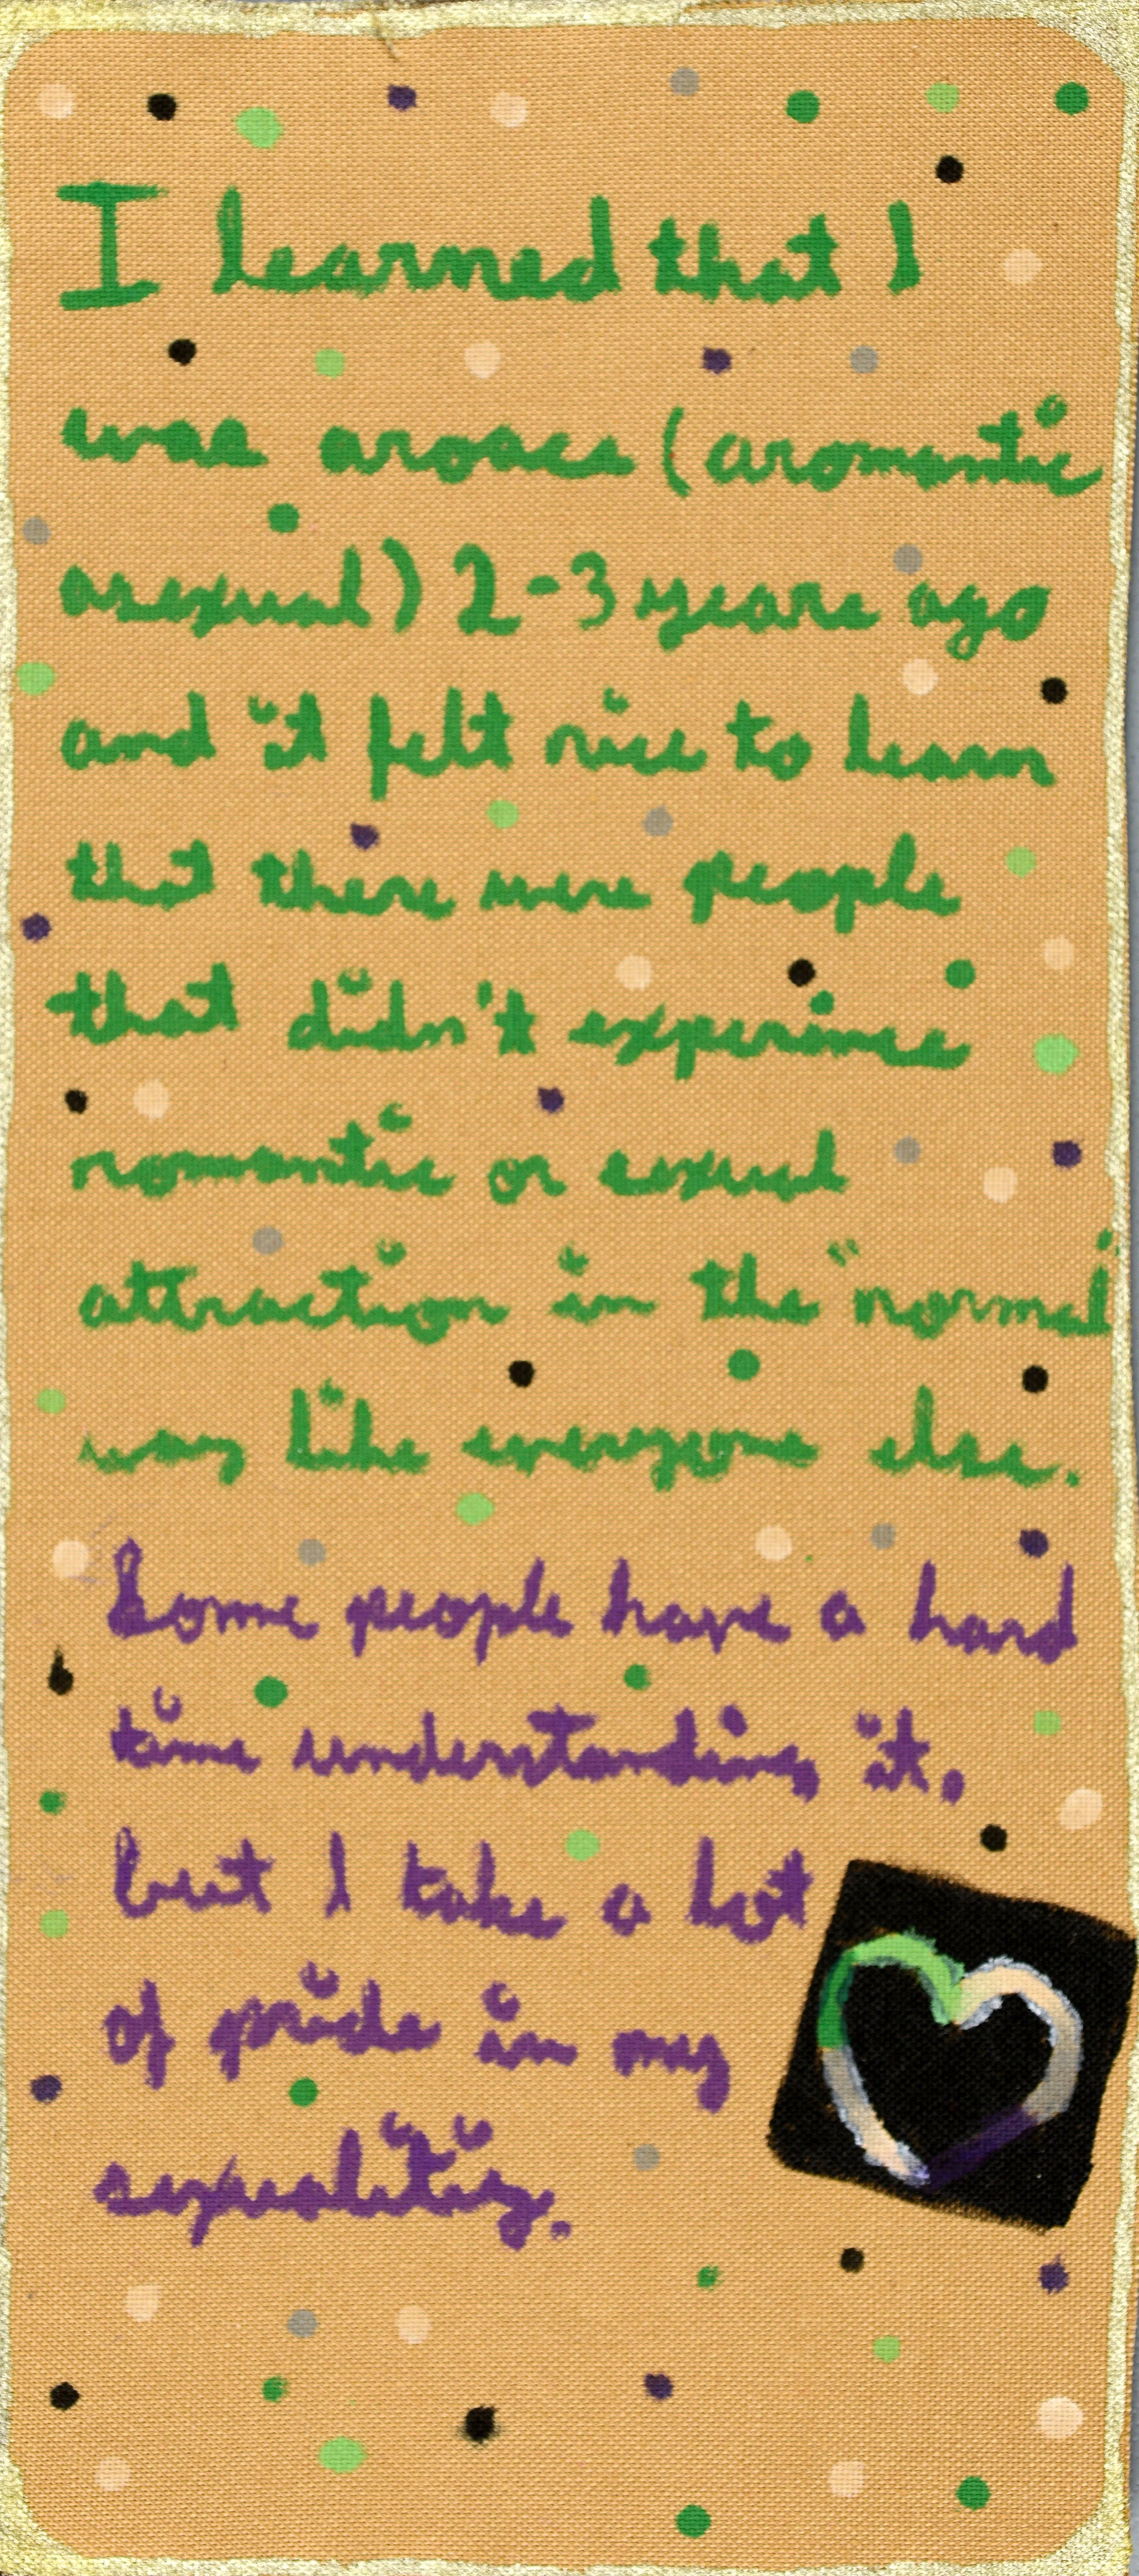 I learned that I
was aroace (aromantic
asexual) 2-3 years ago
and it felt nice to learn
that there were people
that didn't experince
romantic or sexual
attraction in the "normal"
way like everyone else.
Some people have a hard
time understanding it,
but I take a lot
of pride in my
sexuality.